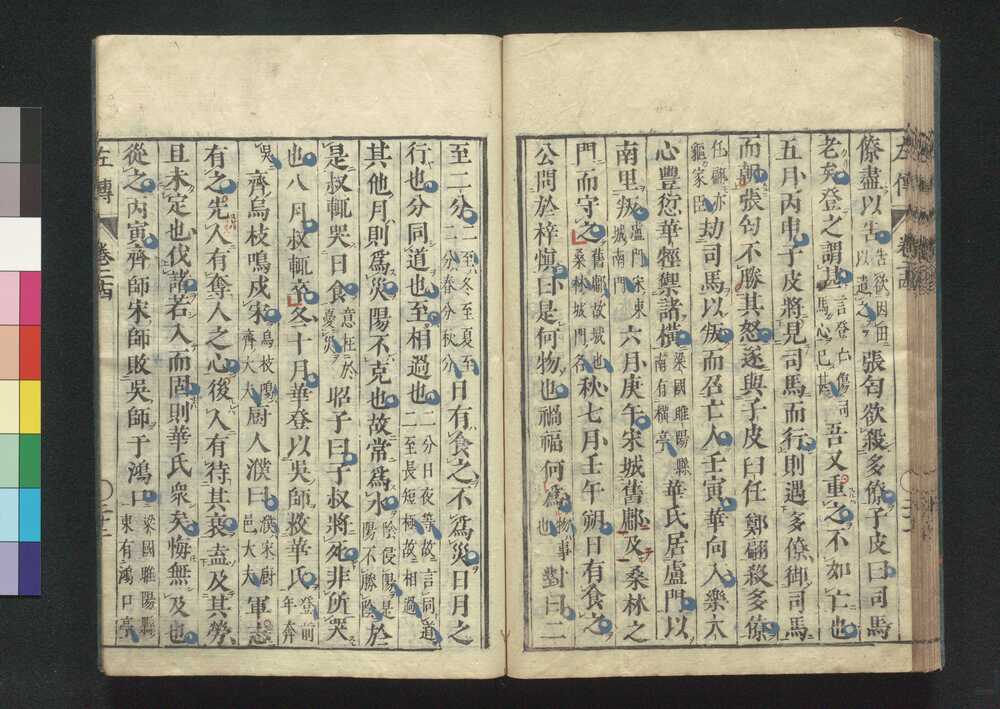 僚盡以告告欲因田以遣之張匄欲殺多僚子皮曰司馬
老矣登之謂甚言登亡傷司馬心已甚吾又重之不如亡也
五月丙申子皮將見司馬而行則遇多僚御司馬
而朝張匄不勝其怒遂與子皮臼任鄭翩殺多僚
任翩亦家臣劫司馬以叛而召亡人壬寅華向入樂大
心豐愆華牼禦諸橫梁國睢陽縣南有橫亭華氏居盧門以
南里叛盧門宋東城南門六月庚午宋城舊鄘及桑林之
門而守之舊鄘故城也桑林城門名秋七月壬午朔日有食之
公問於梓慎曰是何物也禍福何爲物事也對曰二
至二分二至冬至夏至二分春分秋分日有食之不爲災日月之
行也分同道也至相過也二分日夜等故言同道二至長短極故相過
其他月則爲災陽不克也故常爲水陰侵陽是陽不勝陰於
是叔輒哭日食意在於憂災昭子曰子叔將死非所哭
也八月叔輒卒冬十月華登以吳師救華氏登前年奔
吳齊烏枝鳴戍宋烏枝鳴齊大夫廚人濮曰濮宋廚邑大夫軍志
有之先人有奪人之心後人有待其衰盍及其勞
且未定也伐諸若入而固則華氏衆矣悔無及也
從之丙寅齊師宋師敗吳師于鴻口梁國睢陽縣東有鴻口亭
左傳
卷二四